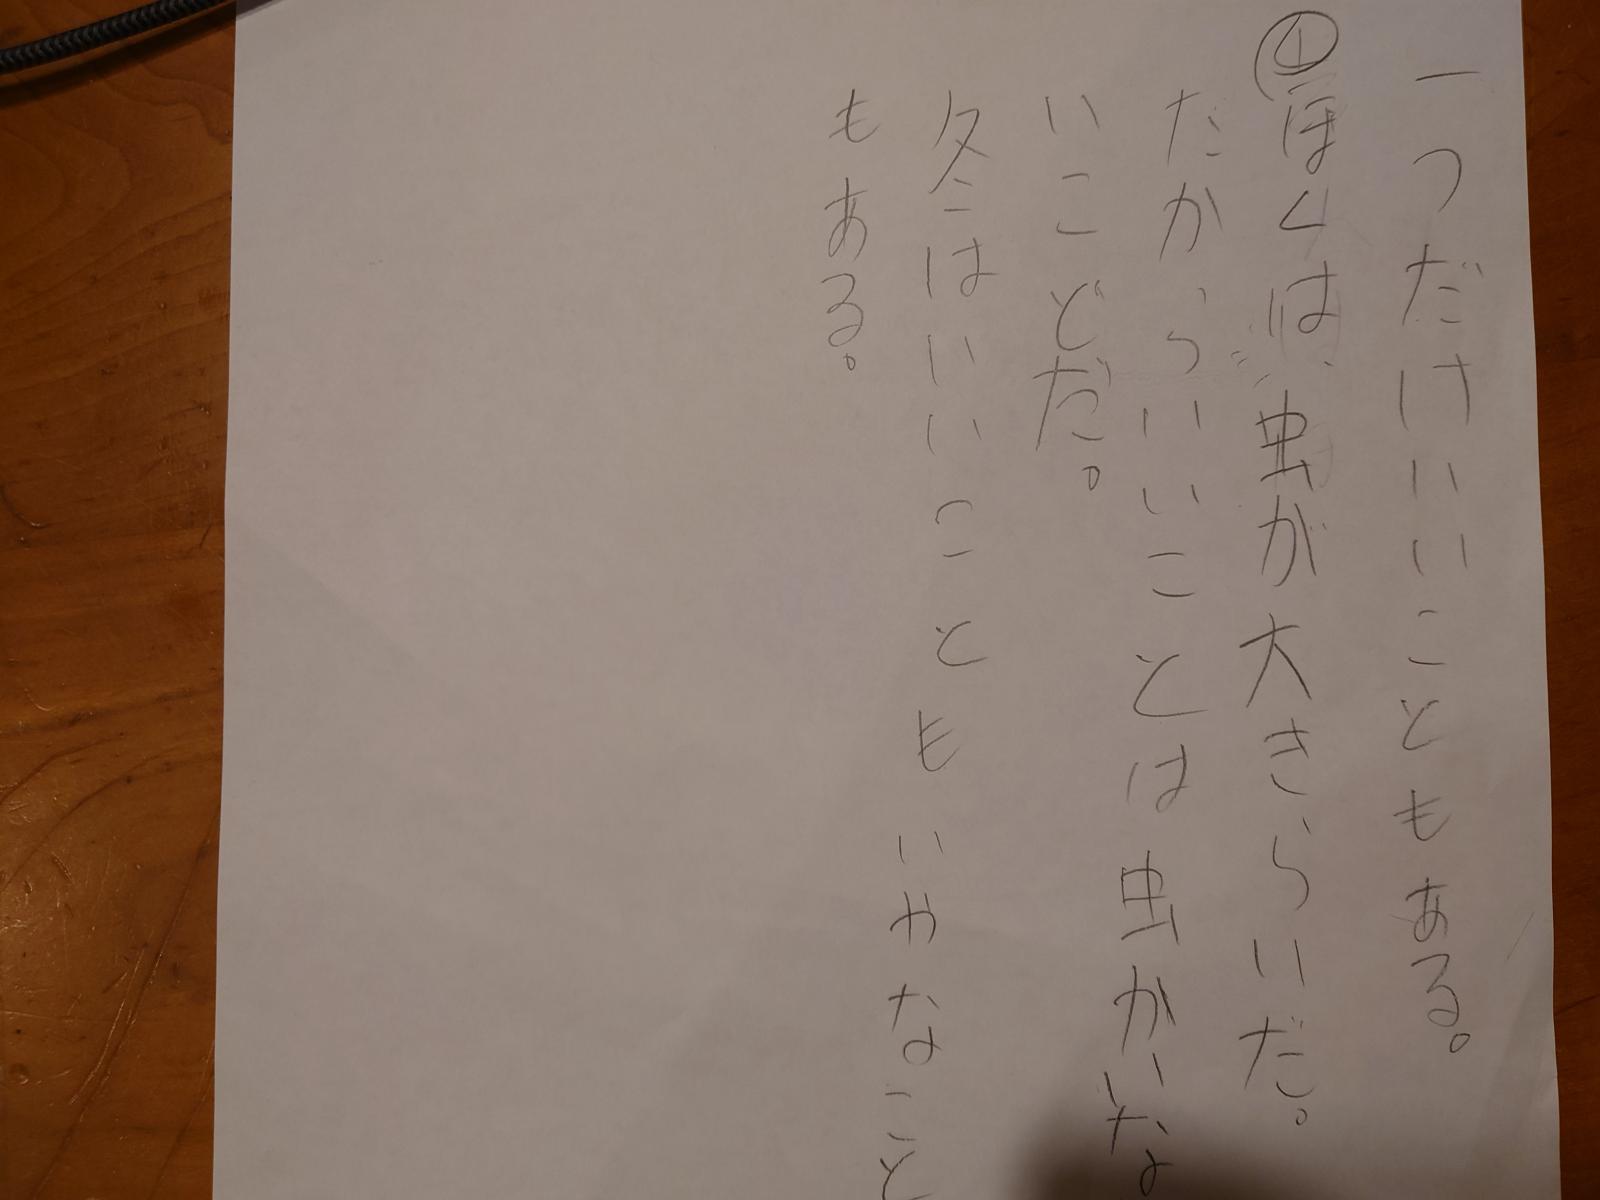 一つだけいいこともある。
①ぼくは、虫が大きらいだ。
だからいいことは虫がいな
いことだ。
冬はいいこともいやなこと
もある。